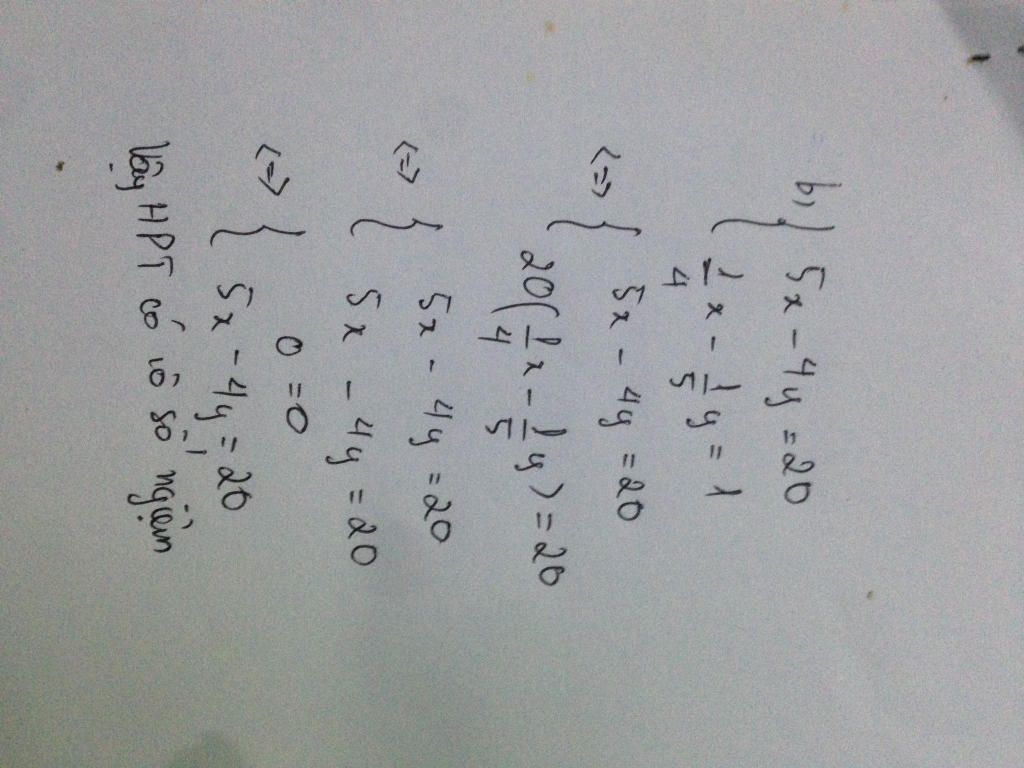 b,) { 5x - 4y = 20
1/4 x - 1/5 y = 1
<=> { 5x - 4y = 20
20(1/4 x - 1/5 y) = 20
<=> { 5x - 4y = 20
5x - 4y = 20
<=> { 0 = 0
5x - 4y = 20
Vậy HPT có vô số nghiệm